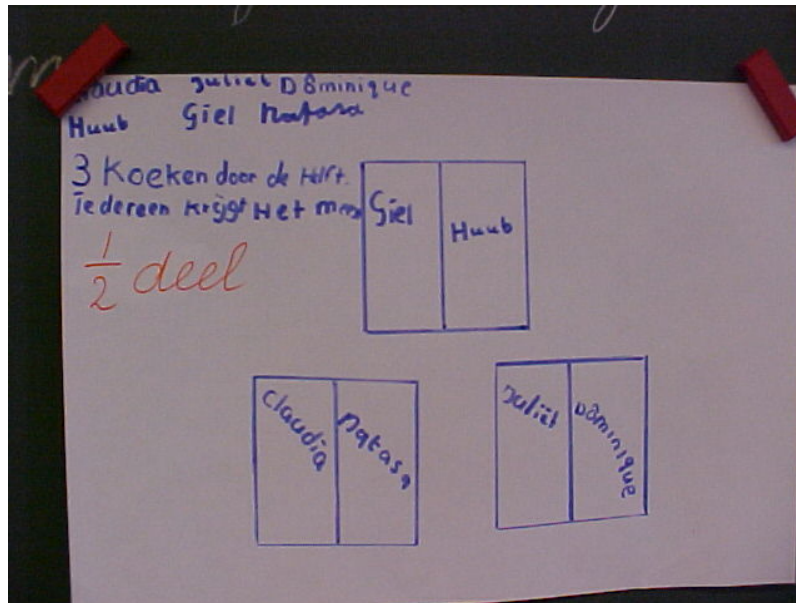 Claudia Juliët Dôminique
Huub Giel Natasa
3 Koeken door de Helft.
iedereen krijgt Het
1/2 deel
Giel Huub
Claudia Natasa
Juliët Dôminique